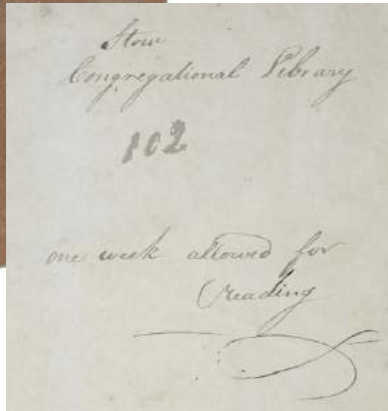 Stow
Congregational Library
102
one week allowed for
reading